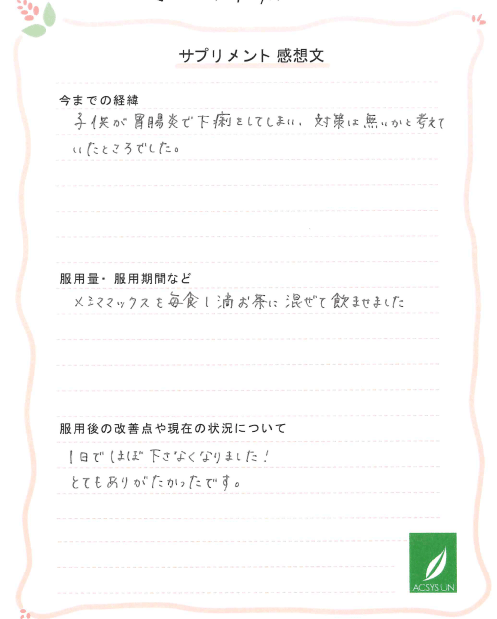 サプリメント 感想文
今までの経緯
子供が胃腸炎で下痢をしてしまい、対策は無いかと考えて
いたところでした。
服用量・服用期間など
メシママックスを毎食1滴お茶に混ぜて飲ませました
服用後の改善点や現在の状況について
1日でほぼ下さなくなりました!
とてもありがたかったです。
ACSYS LIN